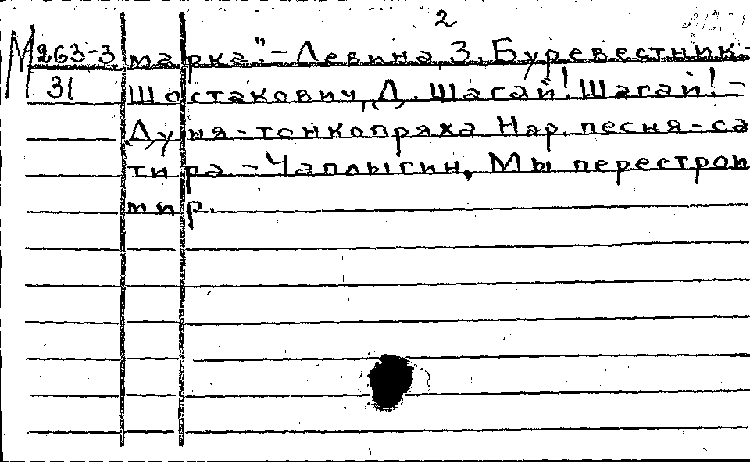 2
М 263-3 марка". – Левина, З. Буревестник. –
31 Шостакович, Д. Шагай! Шагай! –
Дуня-тонкопряха Нар. песня-са
тира. – Чаплыгин, Мы перестроим
мир.